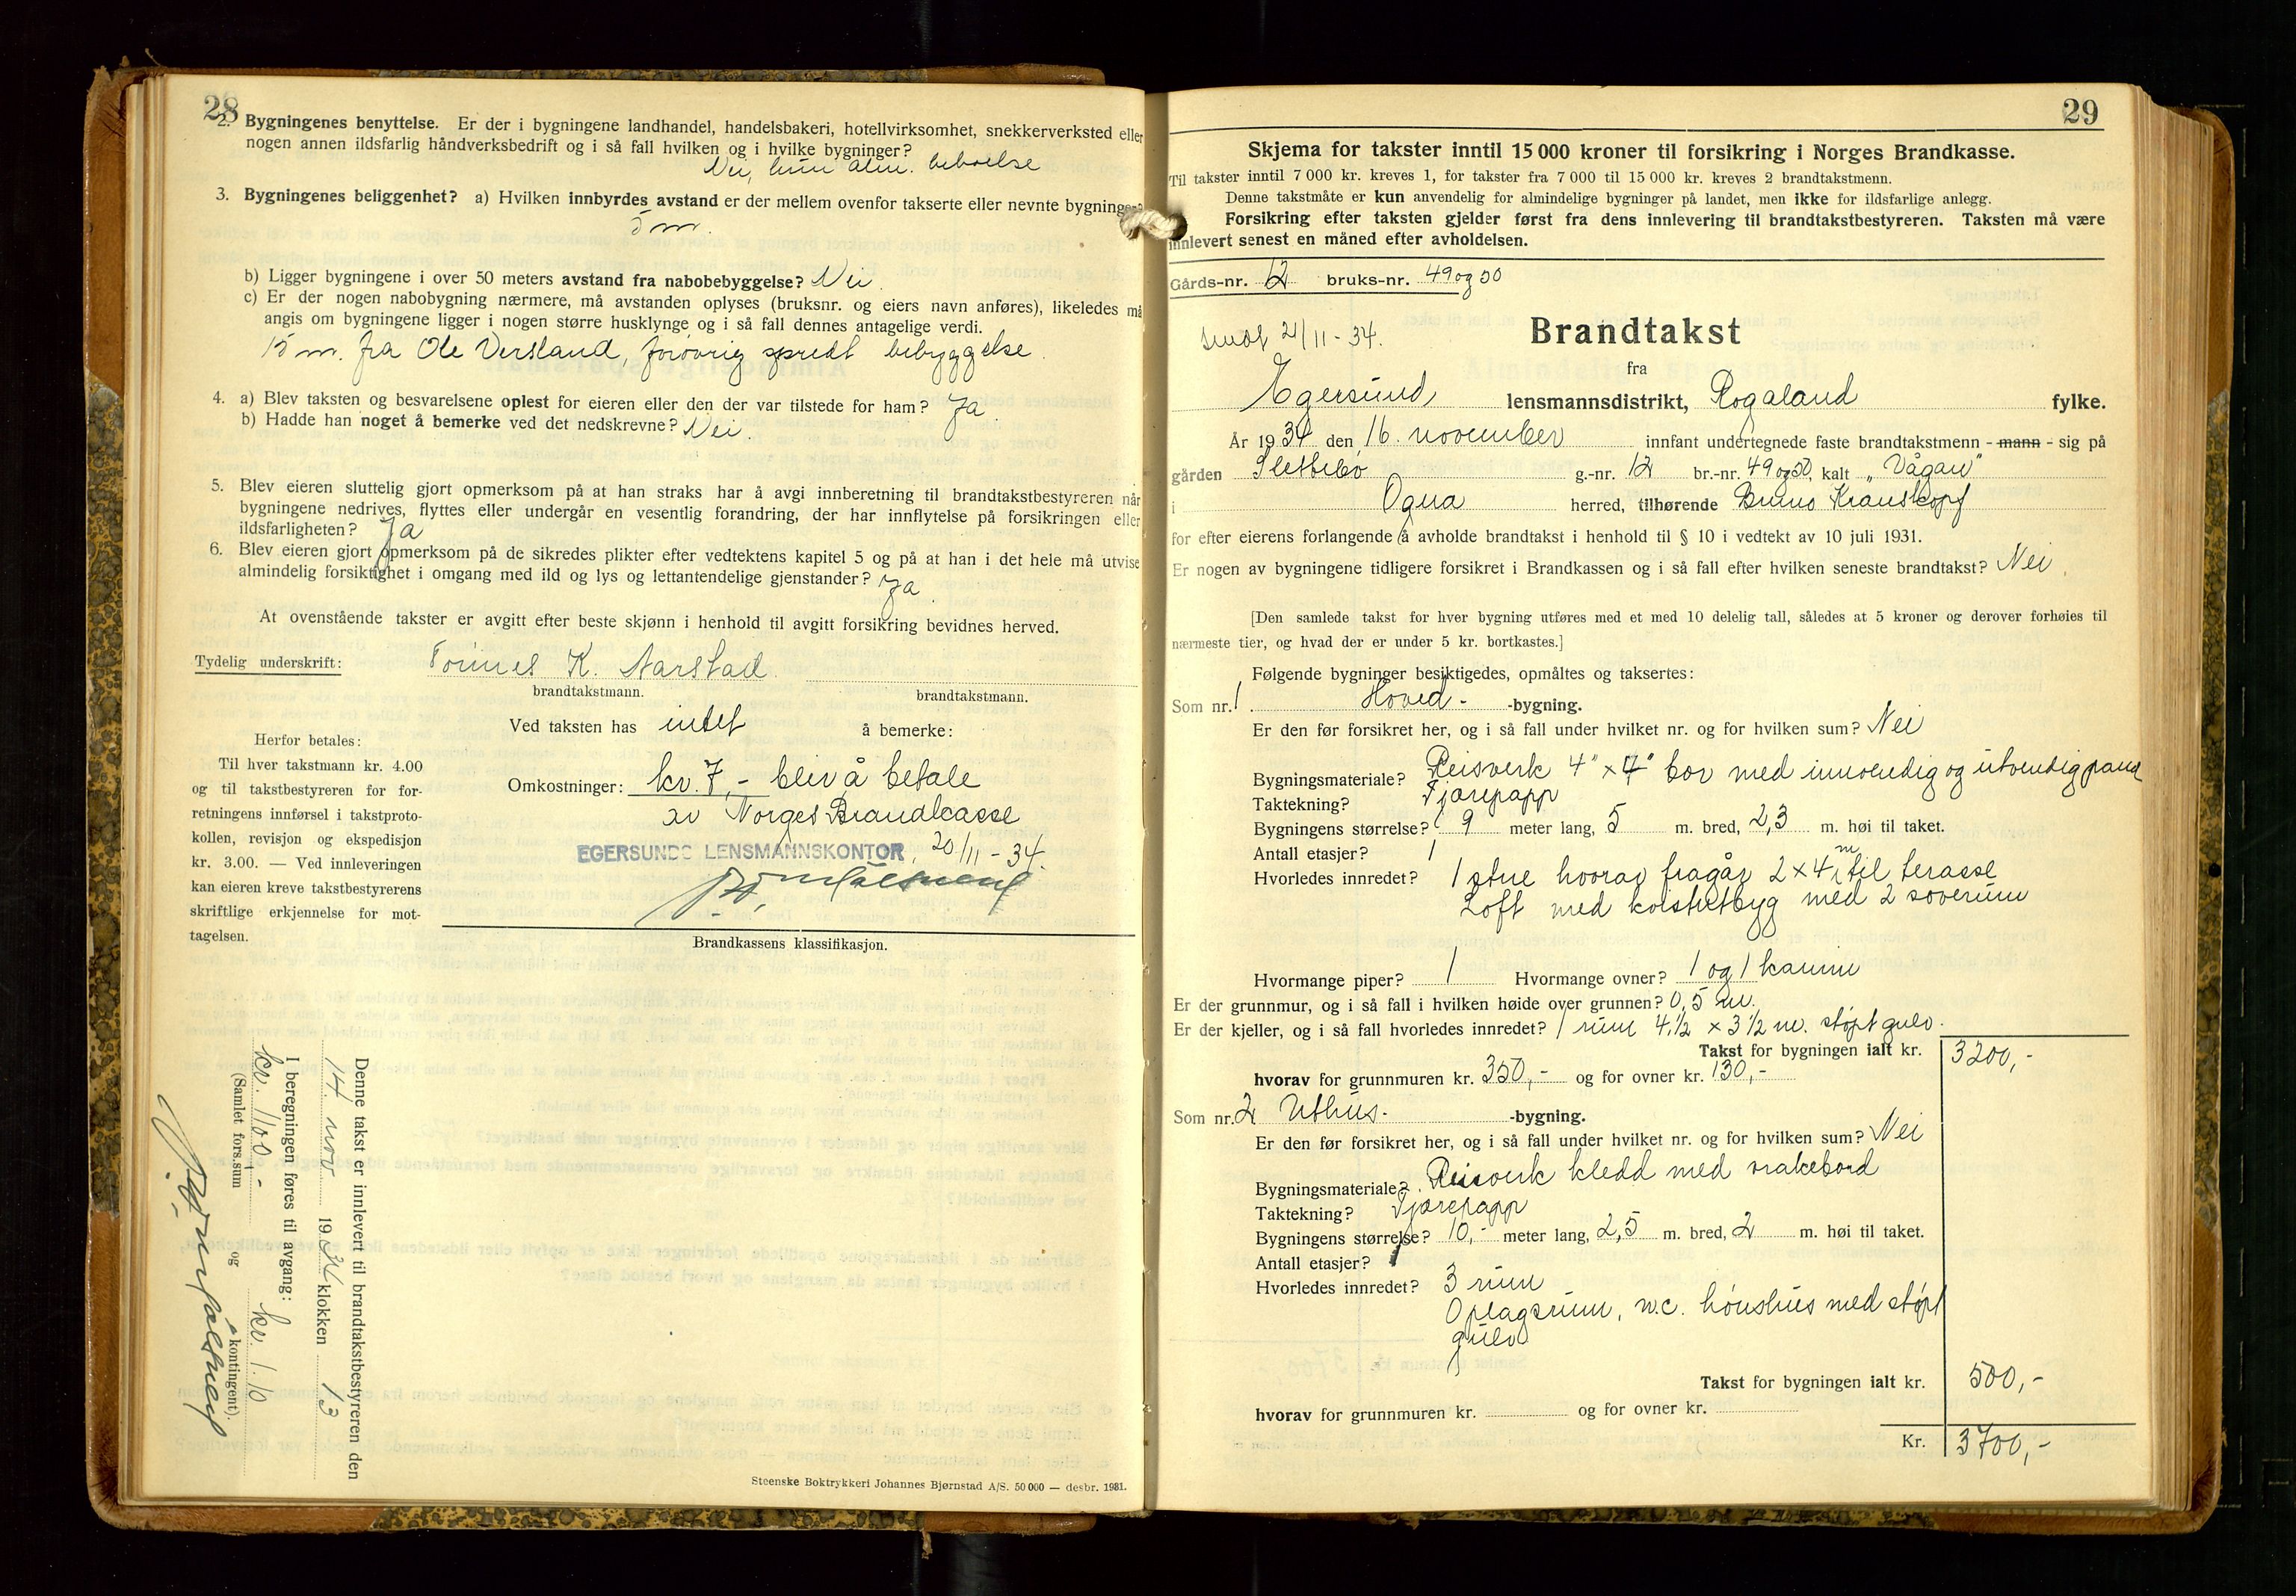 28
2. Bygningenes benyttelse. Er der i bygningene landhandel, handelsbakeri, hotellvirksomhet, snekkerverksted eller
nogen annen ildsfarlig håndverksbedrift og i så fall hvilken og i hvilke bygninger?
Nei, kun alm. beboelse
3. Bygningenes beliggenhet? a) Hvilken innbyrdes avstand er der mellem ovenfor takserte eller nevnte bygninger?
5 m.
b) Ligger bygningene i over 50 meters avstand fra nabobebyggelse? Nei.
c) Er der nogen nabobygning nærmere, må avstanden oplyses (bruksnr. og eiers navn anføres), likeledes må
angis om bygningene ligger i nogen større husklynge og i så fall dennes antagelige verdi.
15 m. fra Ole Versland, forøvrig spredt bebyggelse.
4. a) Blev taksten og besvarelsene oplest for eieren eller den der var tilstede for ham? Ja
b) Hadde han noget å bemerke ved det nedskrevne? Nei.
5. Blev eieren sluttelig gjort opmerksom på at han straks har å avgi innberetning til brandtakstbestyreren når
bygningene nedrives, flyttes eller undergår en vesentlig forandring, der har innflytelse på forsikringen eller
ildsfarligheten? Ja
6. Blev eieren gjort opmerksom på de sikredes plikter efter vedtektens kapitel 5 og på at han i det hele må utvise
almindelig forsiktighet i omgang med ild og lys og lettantendelige gjenstander? Ja.
At ovenstående takster er avgitt efter beste skjønn i henhold til avgitt forsikring bevidnes herved.
Tydelig underskrift: Tønnes K. Aarstad
brandtakstmann. brandtakstmann.
Ved taksten has intet å bemerke:
Herfor betales:
Til hver takstmann kr. 4.00
og til takstbestyreren for for-
retningens innførsel i takstproto-
kollen, revisjon og ekspedisjon
kr. 3.00. — Ved innleveringen
kan eieren kreve takstbestyrerens
skriftlige erkjennelse for mot-
tagelsen.
Omkostninger: kr. 7,- blir å betale
av Norges Brandkasse
EGERSUNDS LENSMANNSKONTOR, 20/11-34.
Brandkassens klassifikasjon.
Denne takst er innlevert til brandtakstbestyreren den
14. nov 1934 klokken 13
I beregningen føres til avgang:
kr. 1100,- kr. 1.10
(Samlet fors.sum og kontingent).
Steenske Boktrykkeri Johannes Bjørnstad A/S. 50 000 — desbr. 1931.
29
Skjema for takster inntil 15 000 kroner til forsikring i Norges Brandkasse.
Til takster inntil 7 000 kr. kreves 1, for takster fra 7 000 til 15 000 kr. kreves 2 brandtakstmenn.
Denne takstmåte er kun anvendelig for almindelige bygninger på landet, men ikke for ildsfarlige anlegg.
Forsikring efter taksten gjelder først fra dens innlevering til brandtakstbestyreren. Taksten må være
innlevert senest en måned efter avholdelsen.
Gårds-nr. 12 bruks-nr. 49 og 50
21/11-34.
Brandtakst
fra
Egersund lensmannsdistrikt, Rogaland fylke.
År 1934 den 16. november innfant undertegnede faste brandtakstmenn - mann - sig på
gården Slettebø g.-nr. 12 br.-nr. 49 og 50, kalt "Vågan"
i Ogna herred, tilhørende Bruno Krauskopf
for efter eierens forlangende å avholde brandtakst i henhold til § 10 i vedtekt av 10 juli 1931.
Er nogen av bygningene tidligere forsikret i Brandkassen og i så fall efter hvilken seneste brandtakst? Nei.
[Den samlede takst for hver bygning utføres med et med 10 delelig tall, således at 5 kroner og derover forhøies til
nærmeste tier, og hvad der er under 5 kr. bortkastes.]
Følgende bygninger besiktigedes, opmåltes og taksertes:
Som nr. 1 Hoved- -bygning.
Er den før forsikret her, og i så fall under hvilket nr. og for hvilken sum? Nei
Bygningsmateriale? Reisverk 4" x 4" bor med innvendig og utvendig panel
Taktekning? Tjærepapp
Bygningens størrelse? 9 meter lang, 5 m. bred, 2,3 m. høi til taket.
Antall etasjer? 1
Hvorledes innredet? 1 stue hvorav fragår 2 x 4 m til terasse
Loft med med 2 soverum
Hvormange piper? 1 Hvormange ovner? 1 og 1 kamin
Er der grunnmur, og i så fall i hvilken høide over grunnen? 0,5 m.
Er der kjeller, og i så fall hvorledes innredet? 1 rum 4,1/2 x 3 1/2 m. støpt gulv.
Takst for bygningen ialt kr. 3200,-
hvorav for grunnmuren kr. 350,- og for ovner kr. 130,-
Som nr. 2 Uthus- -bygning.
Er den før forsikret her, og i så fall under hvilket nr. og for hvilken sum? Nei
Bygningsmateriale? Reisverk kledd med vrakebord
Taktekning? Tjærepapp
Bygningens størrelse? 10,- meter lang, 2,5 m. bred, 2 m. høi til taket.
Antall etasjer? 1
Hvorledes innredet? 3 rum
Oplagsrum, w.c. hønshus med støpt
gulv
Takst for bygningen ialt kr. 500,-
hvorav for grunnmuren kr. og for ovner kr.
Kr. 3700,-